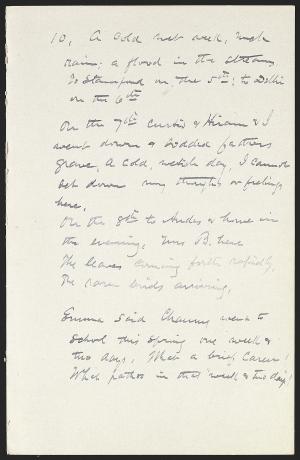 10, A cold wet week, much
rain; a flood in the streams,
To Stamford on the 5th; to Delhi
on the 6th
On the 7th Curtis & Hiram & I
went down & sodded fathers
grave, A cold, wetish day, I cannot
set down my thoughts or feelings
here.
On the 8th to Andes & home in
the evening, Mrs B. here
The leaves coming forth rapidly,
The rarer birds arriving,
Emma said Channy went to
school this spring one week &
two days, What a brief career!
What pathos in that week & two days!